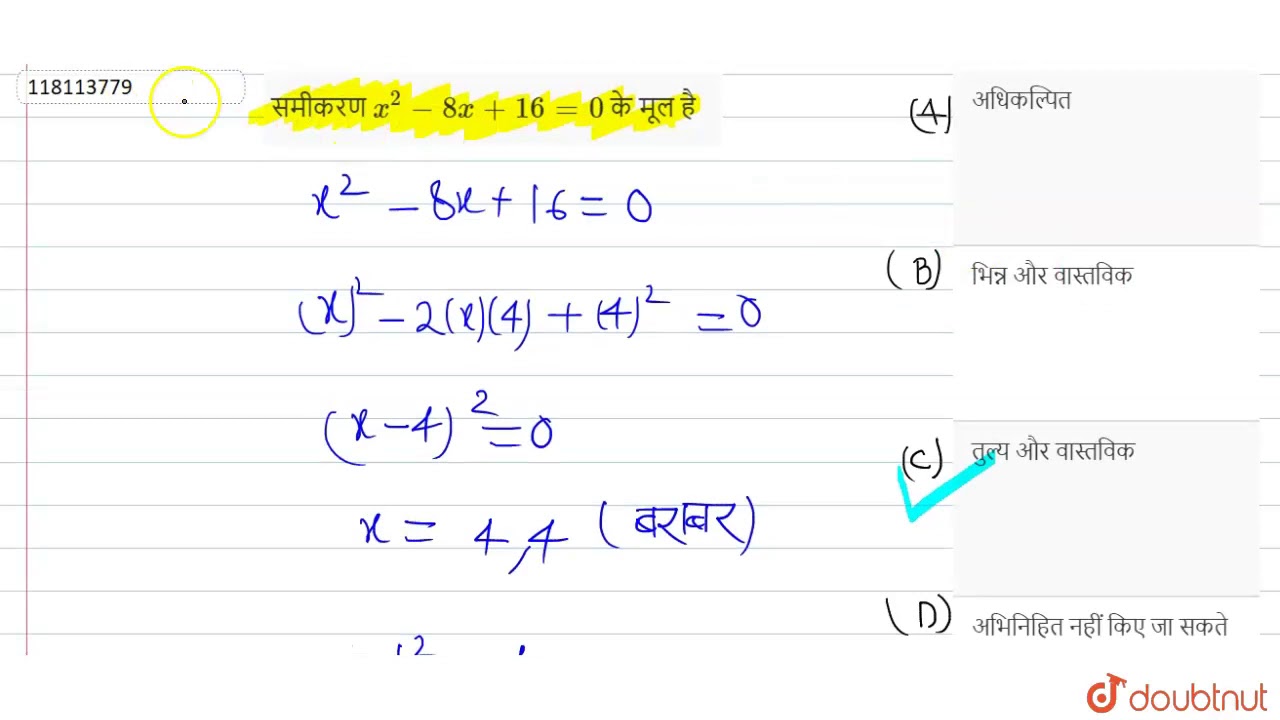 118113779
समीकरण x² − 8x + 16 = 0 के मूल है
x² − 8x + 16 = 0
(x)² − 2(x)(4) + (4)² = 0
(x − 4)² = 0
x = 4, 4 (बराबर)
(A) अधिकल्पित
(B) भिन्न और वास्तविक
(C) तुल्य और वास्तविक
(D) अभिनिहित नहीं किए जा सकते
doubtnut